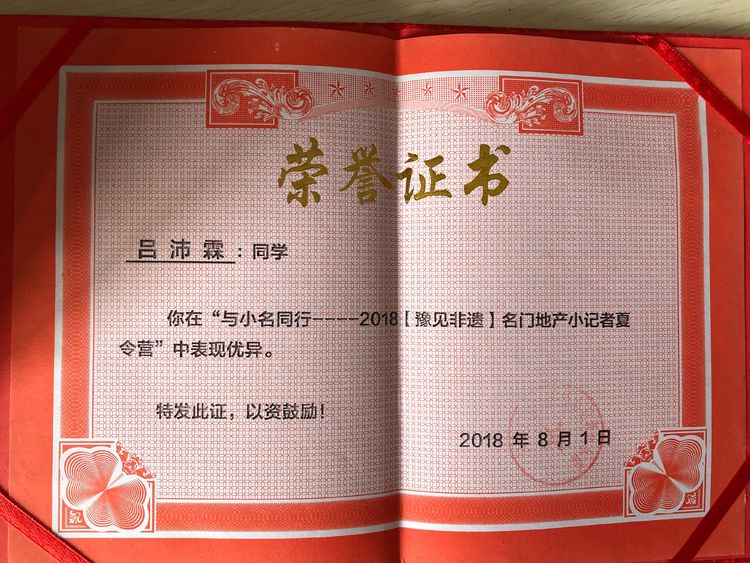 荣誉证书
吕沛霖：同学
你在“与小名同行----2018【豫见非遗】名门地产小记者夏
令营”中表现优异。
特发此证，以资鼓励！
2018 年 8 月 1 日